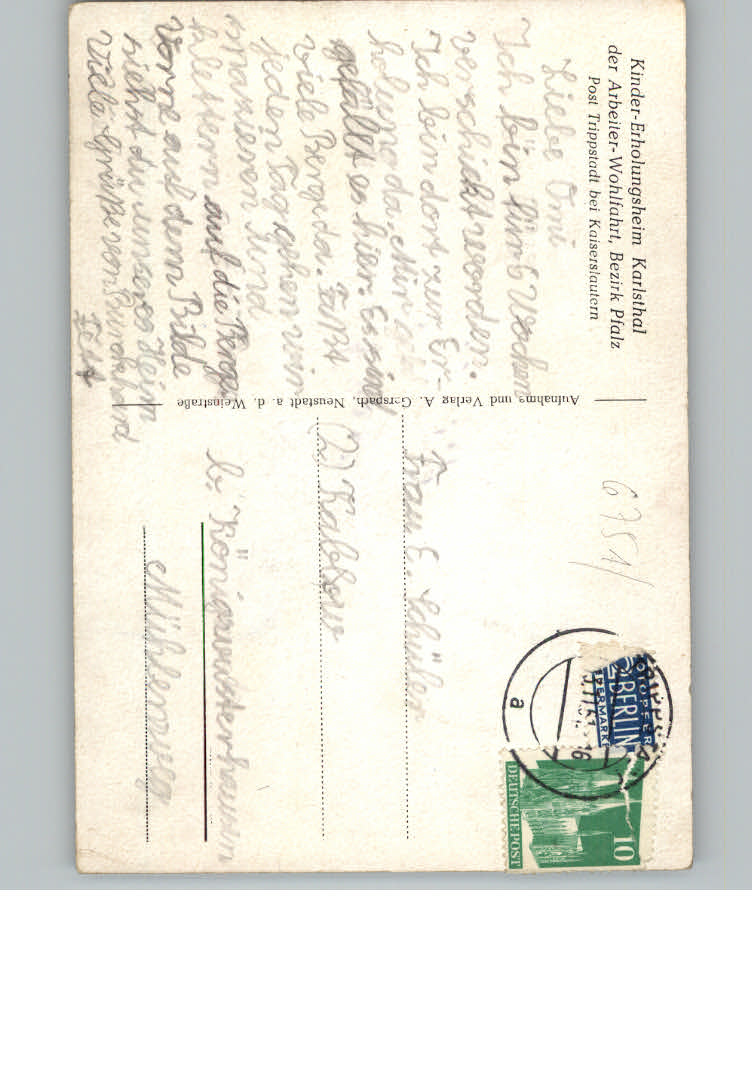 Kinder-Erholungsheim Karlsthal
der Arbeiter-Wohlfahrt, Bezirk Pfalz
Post Trippstadt bei Kaiserslautern
Liebe Omi
Ich bin für 6 Wochen
verschickt worden.
Ich bin dort zur Er-
holung da. Mir
gefällt es hier. Es sind
viele Berge da. Fast
jeden Tag gehen wir
marschieren und
klettern auf die Berge
Vorne auf dem Bilde
siehst du unser Heim
Viele Grüße von Burckhard
Aufnahme und Verlag A. Gerspach, Neustadt a. d. Weinstraße
6751/
Frau E. Schüler
(2) Kablow
b. Königswusterhausen
Mühlenweg
TRIPPSTA
a
NOTOPFER
2 BERLIN
STEUERMARKE
10
DEUTSCHE POST